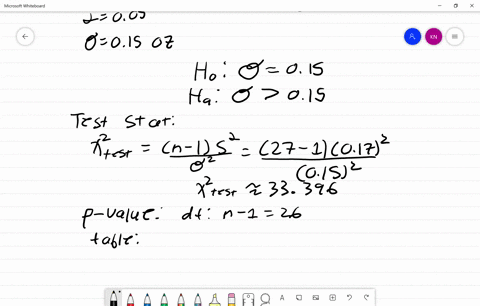 Microsoft Whiteboard
α = 0.05
σ = 0.15 oz
KN
H₀: σ = 0.15
Hₐ: σ > 0.15
Test Stat:
χ²test = (n-1)S² / σ² = (27-1)(0.17)² / (0.15)²
χ²test ≈ 33.396
p-value: df: n-1 = 26
table: